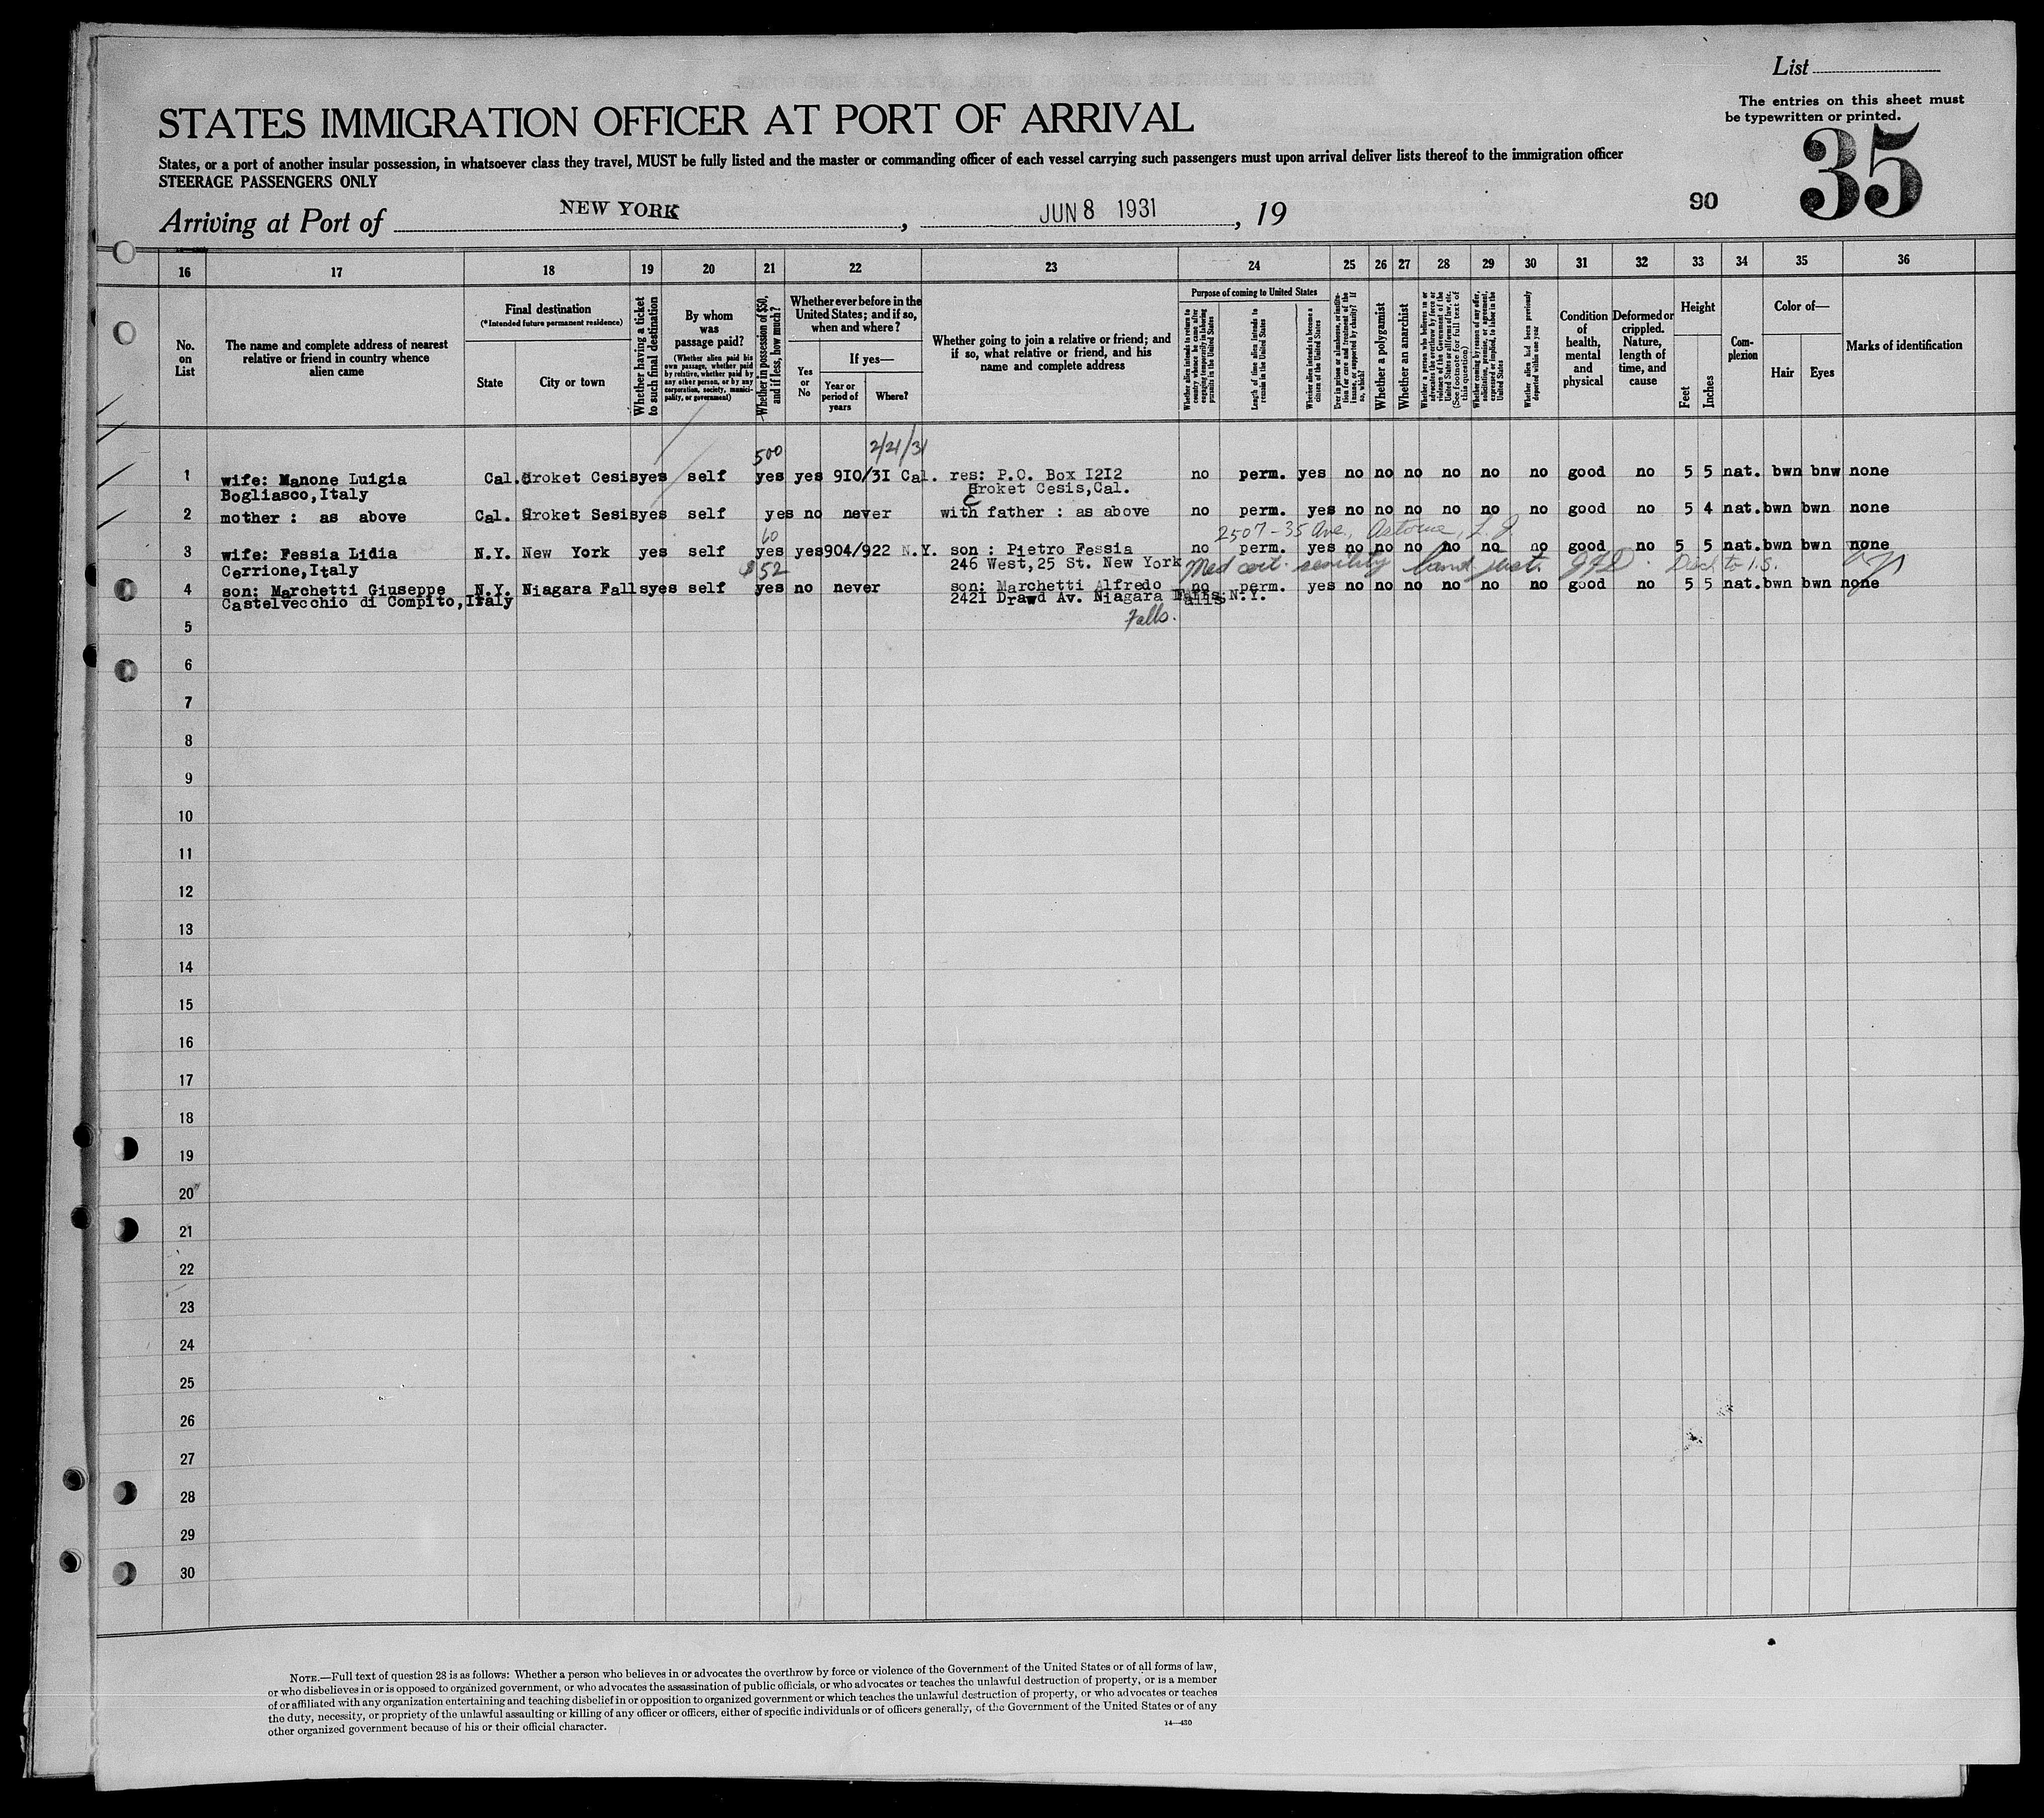 List
The entries on this sheet must
be typewritten or printed.
STATES IMMIGRATION OFFICER AT PORT OF ARRIVAL
35
States, or a port of another insular possession, in whatsoever class they travel, MUST be fully listed and the master or commanding officer of each vessel carrying such passengers must upon arrival deliver lists thereof to the immigration officer
STEERAGE PASSENGERS ONLY
90
Arriving at Port of NEW YORK, JUN 8 1931, 19
16 17 18 19 20 21 22 23 24 25 26 27 28 29 30 31 32 33 34 35 36
No. on List
The name and complete address of nearest
relative or friend in country whence
alien came
Final destination
(*Intended future permanent residence)
State
City or town
Whether having a ticket
to such final destination
By whom
was
passage paid?
(Whether alien paid his
own passage, whether paid
by relative, whether paid by
any other person, or by any
corporation, society, munici-
pality, or government)
Whether in possession of $50,
and if less, how much?
Whether ever before in the
United States; and if so,
when and where?
Yes
or
No
If yes—
Year or
period of
years
Where?
Whether going to join a relative or friend; and
if so, what relative or friend, and his
name and complete address
Purpose of coming to United States
Whether alien intends to return to
country whence he came after
engaging temporarily in laboring
pursuits in the United States
Length of time alien intends to
remain in the United States
Whether alien intends to become a
citizen of the United States
Ever in prison or almshouse, or institu-
tion for care and treatment of the
insane, or supported by charity? If
so, which?
Whether a polygamist
Whether an anarchist
Whether a person who believes in or
advocates the overthrow by force or
violence of the Government of the
United States or all forms of law, etc.
(See footnote for full text of
this question)
Whether coming by reason of any offer,
solicitation, promise, or agreement,
expressed or implied, to labor in the
United States
Whether alien had been previously
deported within one year
Condition
of
health,
mental
and
physical
Deformed or
crippled.
Nature,
length of
time, and
cause
Height
Feet
Inches
Com-
plexion
Color of—
Hair
Eyes
Marks of identification
500 2/21/31
1 wife: Manone Luigia Cal. Croket Cesis yes self yes yes 9I0/3I Cal. res: P.O. Box I2I2 no perm. yes no no no no no no good no 5 5 nat. bwn bnw none
Bogliasco,Italy Croket Cesis,Cal.
2 mother : as above Cal. Croket Sesis yes self yes no never with father : as above no perm. yes no no no no no no good no 5 4 nat. bwn bwn none
60 2507-35 Ave., Astoria, L.I.
3 wife: Fessia Lidia N.Y. New York yes self yes yes 904/922 N.Y. son : Pietro Fessia no perm. yes no no no no no no good no 5 5 nat. bwn bwn none
Cerrione,Italy $52 246 West,25 St. New York Med cert. senility
4 son: Marchetti Giuseppe N.Y. Niagara Falls yes self yes no never son: Marchetti Alfredo no perm. yes no no no no no no good no 5 5 nat. bwn bwn none
Castelvecchio di Compito,Italy 242I Drawd Av. Niagara Falls N.Y.
Falls.
5
6
7
8
9
10
11
12
13
14
15
16
17
18
19
20
21
22
23
24
25
26
27
28
29
30
NOTE.—Full text of question 28 is as follows: Whether a person who believes in or advocates the overthrow by force or violence of the Government of the United States or of all forms of law,
or who disbelieves in or is opposed to organized government, or who advocates the assassination of public officials, or who advocates or teaches the unlawful destruction of property, or is a member
of or affiliated with any organization entertaining and teaching disbelief in or opposition to organized government or which teaches the unlawful destruction of property, or who advocates or teaches
the duty, necessity, or propriety of the unlawful assaulting or killing of any officer or officers, either of specific individuals or of officers generally, of the Government of the United States or of any
other organized government because of his or their official character.
14—430